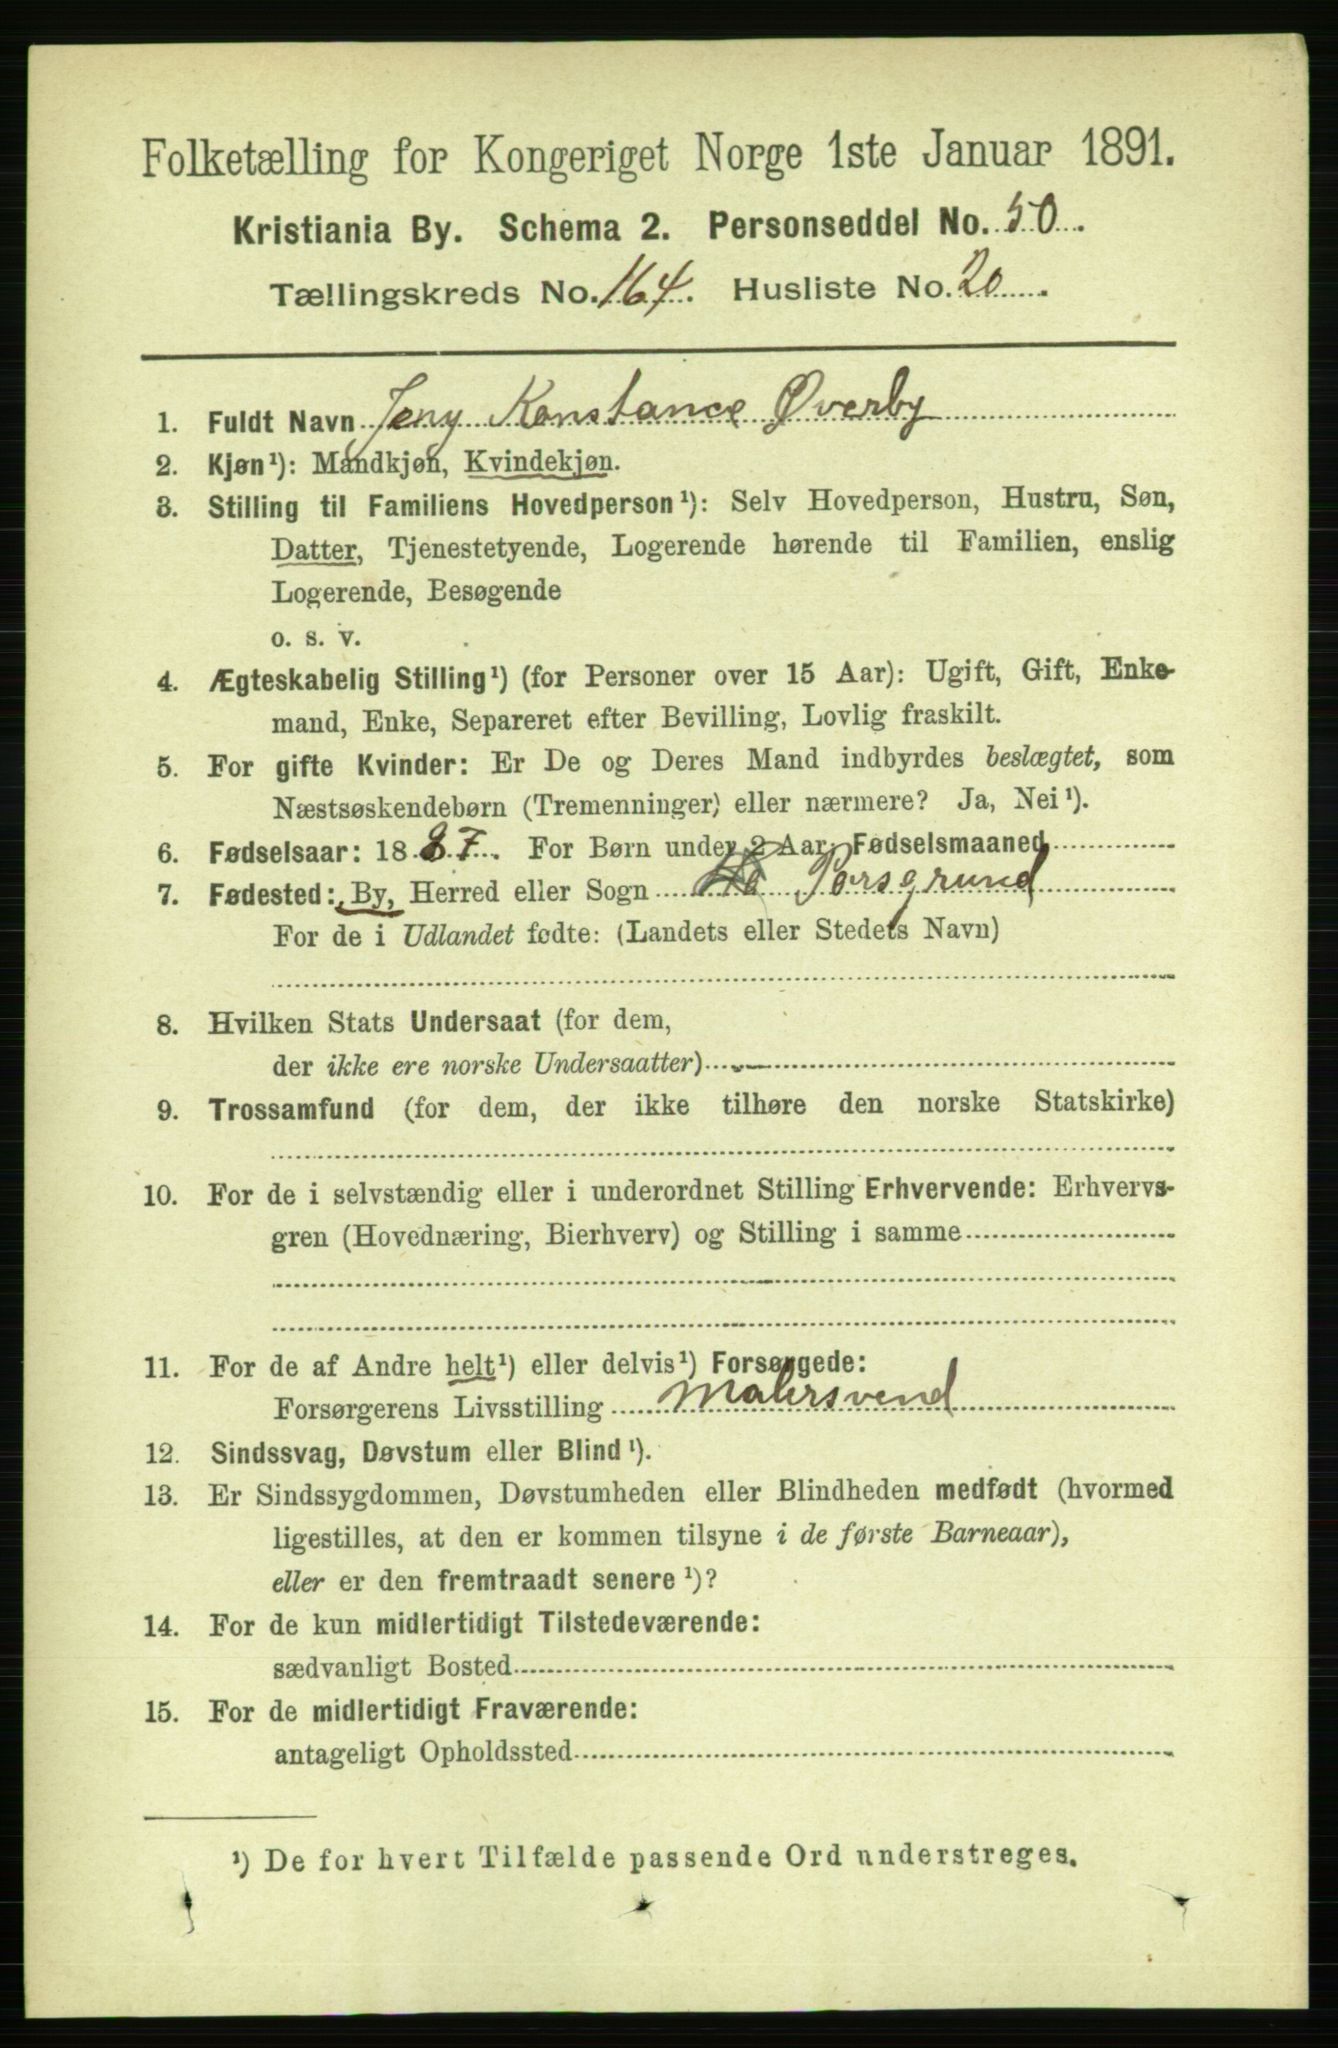 Folketælling for Kongeriget Norge 1ste Januar 1891.
Kristiania By. Schema 2. Personseddel No. 50.
Tællingskreds No. 164. Husliste No. 20.
1. Fuldt Navn Jeny Konstance Øverby
2. Kjøn¹): Mandkjøn, Kvindekjøn.
3. Stilling til Familiens Hovedperson¹): Selv Hovedperson, Hustru, Søn,
Datter, Tjenestetyende, Logerende hørende til Familien, enslig
Logerende, Besøgende
o. s. v.
4. Ægteskabelig Stilling¹) (for Personer over 15 Aar): Ugift, Gift, Enke-
mand, Enke, Separeret efter Bevilling, Lovlig fraskilt.
5. For gifte Kvinder: Er De og Deres Mand indbyrdes beslægtet, som
Næstsøskendebørn (Tremenninger) eller nærmere? Ja, Nei¹).
6. Fødselsaar: 1887. For Børn under 2 Aar: Fødselsmaaned
7. Fødested: By, Herred eller Sogn Porsgrund
For de i Udlandet fødte: (Landets eller Stedets Navn)
8. Hvilken Stats Undersaat (for dem,
der ikke ere norske Undersaatter)
9. Trossamfund (for dem, der ikke tilhøre den norske Statskirke)
10. For de i selvstændig eller i underordnet Stilling Erhvervende: Erhvervs-
gren (Hovednæring, Bierhverv) og Stilling i samme
11. For de af Andre helt¹) eller delvis¹) Forsørgede:
Forsørgerens Livsstilling Malersvend
12. Sindssvag, Døvstum eller Blind¹).
13. Er Sindssygdommen, Døvstumheden eller Blindheden medfødt (hvormed
ligestilles, at den er kommen tilsyne i de første Barneaar),
eller er den fremtraadt senere¹)?
14. For de kun midlertidigt Tilstedeværende:
sædvanligt Bosted
15. For de midlertidigt Fraværende:
antageligt Opholdssted
¹) De for hvert Tilfælde passende Ord understreges.